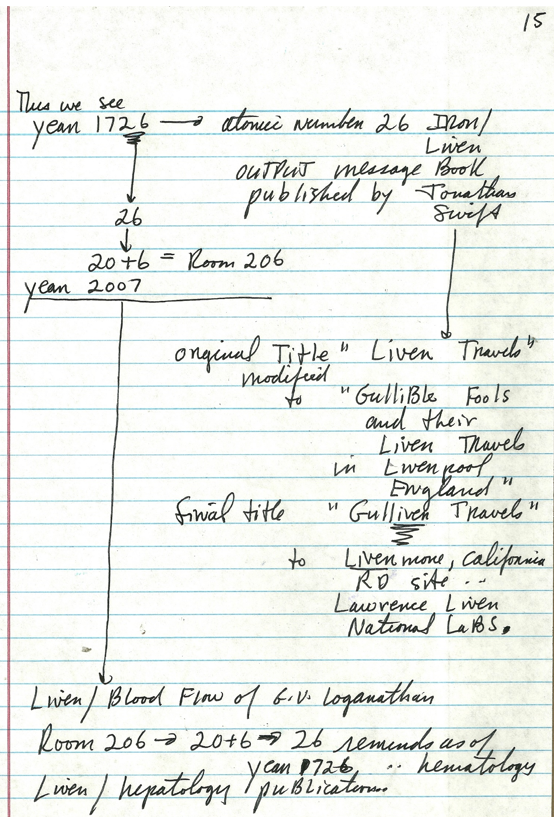 15
Thus we see
year 1726 → atomic number 26 Iron/
Liver
OUTPUT message Book
published by Jonathan
Swift
26
20+6 = Room 206
year 2007
original Title " Liver Travels"
modified
to "GulliBle Fools
and their
Liver Travels
in Liverpool
England"
final title "Gulliver Travels"
to Livermore, California
RD site ..
Lawrence Liver
National LaBS.
Liver / Blood Flow of G.V. Loganathan
Room 206 → 20+6 → 26 reminds as of
year 1726 .. hematology
Liver / hepatology publications